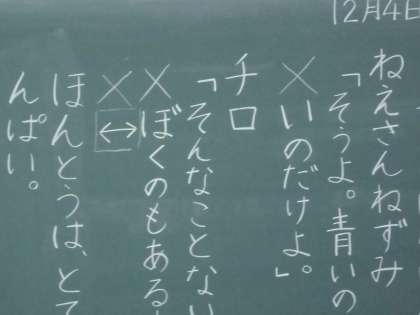 12月4日
ねえさんねずみ
「そうよ。青いの
×いのだけよ」。
チロ
「そんなことない
×ぼくのもある
×↔
ほんとうは、とて
んぱい。